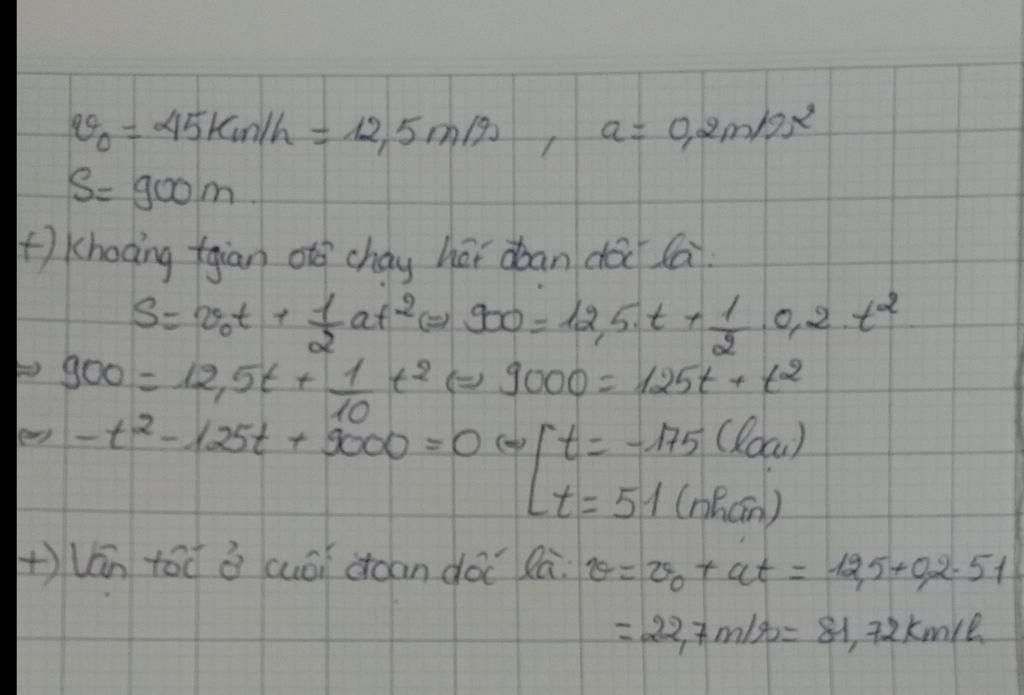 v₀ = 45Km/h = 12,5m/s , a = 0,2m/s²
S = 900m.
+) Khoảng tgian otô chạy hết đoạn dốc là:
S = v₀t + 1/2 at² ⇔ 900 = 12,5.t + 1/2 . 0,2 . t²
⇔ 900 = 12,5t + 1/10 t² ⇔ 9000 = 125t + t²
⇔ -t² - 125t + 9000 = 0 ⇔ [ t = -175 (loại)
t = 51 (nhận)
+) Vận tốc ở cuối đoạn dốc là: v = v₀ + at = 12,5 + 0,2 . 51
= 22,7m/s = 81,72Km/h